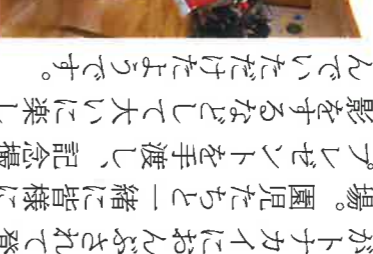 がトナカイにおんぶされて登
場。園児たちと一緒に皆様に
プレゼントを手渡し、記念撮
影をするなどして大いに楽し
んでいただけたようです。